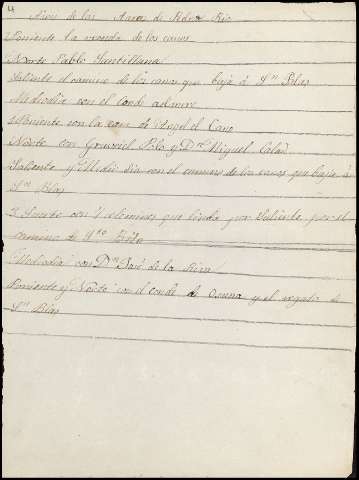 4
Aire de las Aras de Pedro Rio
Poniente la vereda de los canos
Norte Pablo Santillana
Saliente el camino de los canos que baja á Sn Blas
Mediodia con el conde
Poniente con la de Angel el Cano
Norte con Polo y Dn Miguel
Saliente y Medio dia con el camino de los canos que baja á
Sn Blas
3 Suerte con 4 celemines que linda por Saliente por el
camino de
Mediodia con Dn José de la Riva
Poniente y Norte con el conde de Osuna y el regato de
Sn Blas